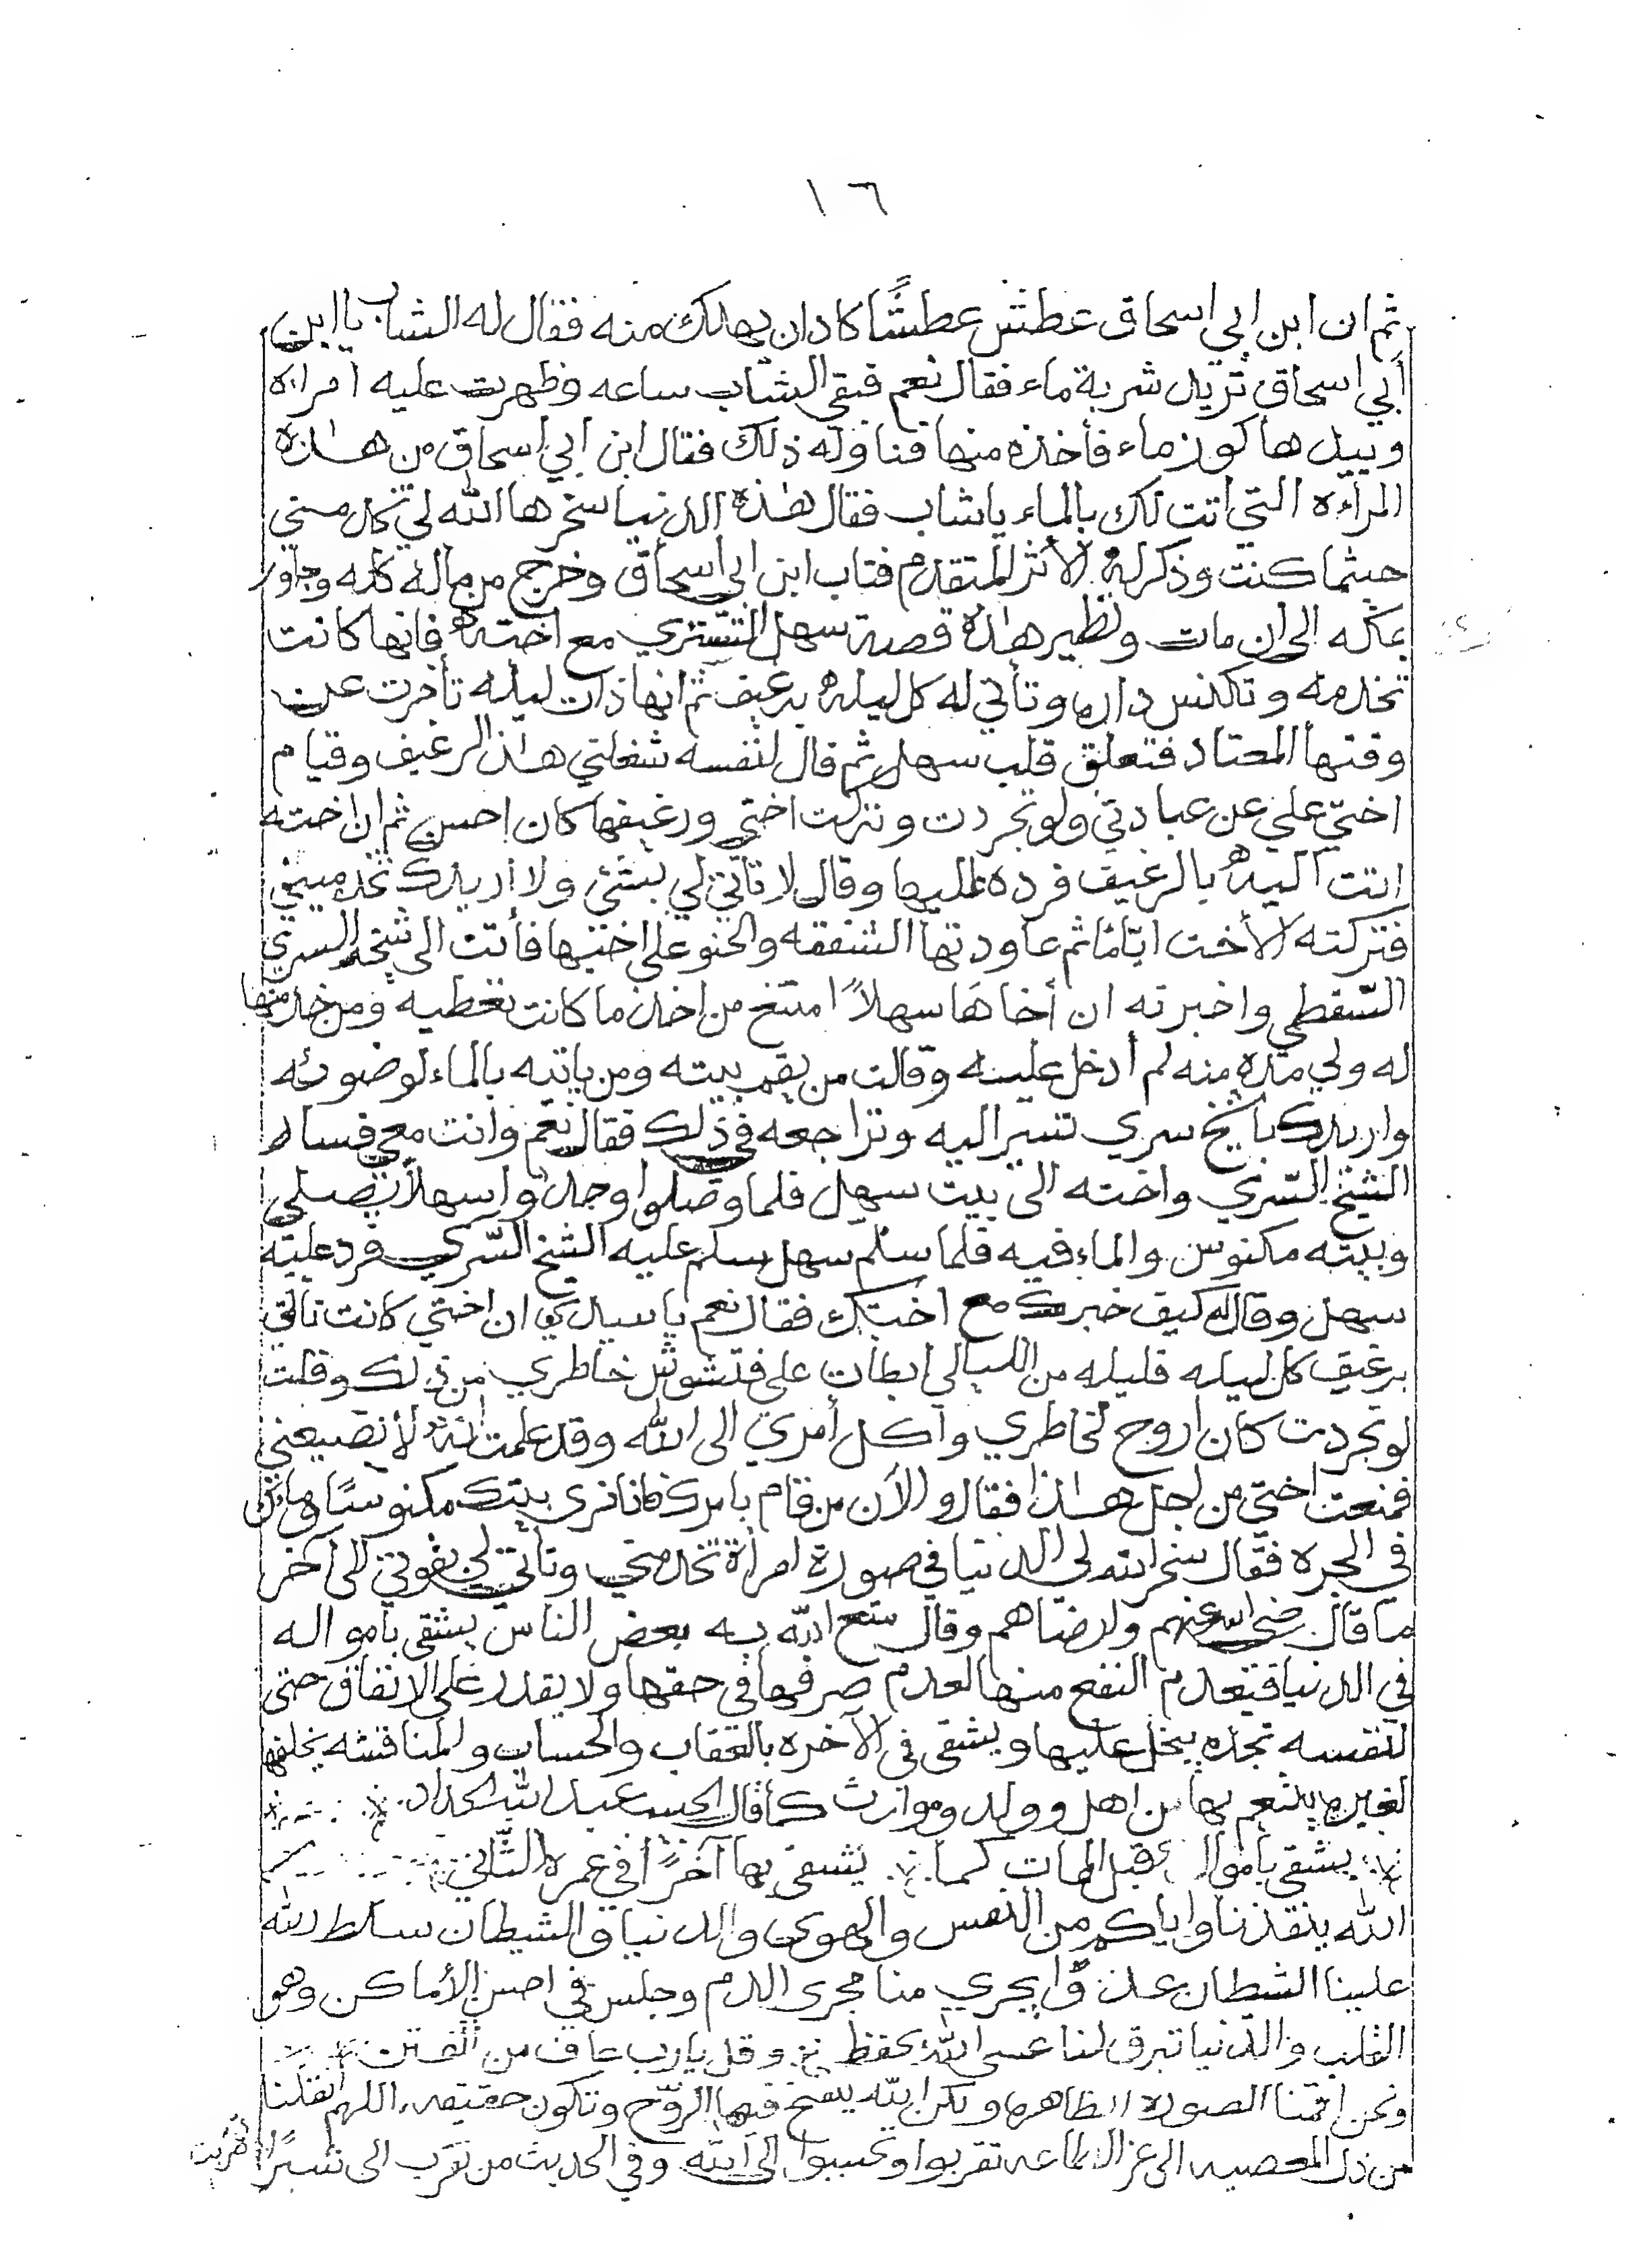 ١٦
ثم ان ابن ابي اسحاق عطش عطشًا كاد ان يهلك منه فقال له الشاب يا ابن
أبي اسحاق تريد شربة ماء فقال نعم فبقي الشاب ساعه وظهرت عليه امراه
وبيدها كوز ماء فأخذه منها فناوله ذلك فقال ابن ابي اسحاق من هذه
المراءه التي اتت لك بالماء ياشاب فقال هذه الدنيا سخرها الله لي تخدمني
حيثما كنت وذكر له الأثر المتقدم فتاب ابن ابي اسحاق وخرج من ماله كله وجاور
بمكه الى ان مات ونظير هذه قصة سهل التستري مع اخته فانها كانت
تخدمه وتكنس داره وتأتي له كل ليله برغيف ثم انها ذات ليله تأخرت عن
وقتها المعتاد فتعلق قلب سهل ثم قال لنفسه شغلني هذا الرغيف وقيام
اختي علي عن عبادتي ولو تجردت وتركت اختي ورغيفها كان احسن ثم ان اخته
اتت اليه بالرغيف فرده عليها وقال لا تأتي لي بشئ ولا أريدك تخدميني
فتركته الأخت ايّامًا ثم عاودتها الشفقه والحنو على اخيها فأتت الى شيخه السري
السّقطي واخبرته ان أخاها سهلاً امتنع من اخذ ما كانت تعطيه ومن خدمتها
له ولي مده منه لم أدخل عليه وقالت من يقم بيته ومن يأتيه بالماء لوضوئه
واريدك ياشيخ سري تسير اليه وتراجعه في ذلك فقال نعم وانت معي فسار
الشيخ السّري واخته الى بيت سهل فلما وصلوا وجدوا سهلاً يصلي
وبيته مكنوس والماء فيه فلما سلم سهل سلم عليه الشيخ السّري فرد عليه
سهل وقال له كيف خبرك مع اختك فقال نعم ياسيدي ان اختي كانت تأتي
برغيف كل ليله فليله من الليالي ابطأت علي فتشوش خاطري من ذلك وقلت
لو تجردت كان اروح لخاطري وأكل أمري الى الله وقد علمت انه لا يضيعني
فمنعت اختي من اجل هذا فقال والآن من قام بامرك فانا نرى بيتك مكنوسًا وماء
في الجره فقال سخر الله لي الدنيا في صورة امرأة تخدمني وتأتي لي بقوتي الى آخر
ما قال رضي الله عنهم وارضاهم وقال متع الله به بعض الناس يشقى بأمواله
في الدنيا فيتعدم النفع منها لعدم صرفها في حقها ولا يقدر على الانفاق حتى
لنفسه تجده يبخل عليها ويشقى في الآخره بالعقاب والحساب والمناقشه يخلفها
لغيره يتنعم بها من اهل وولد وموارث كما قال الحبيب عبد الله الحداد
يشقى بأمواله قبل الممات كما يشقى بها آخرًا في عمره الثّاني
الله ينقذنا واياكم من النفس والهوى والدنيا والشيطان سلط الله
علينا الشطان عدوًّا يجري منا مجرى الدم وجلس في احسن الأماكن وهو
القلب والدّنيا تبرق لنا عسى الله يحفظ وقل يارب عاف من الفتن
ونحن اقمنا الصوره الظاهره ولكن الله ينفخ فيها الرّوح وتكون حقيقه، اللهم انقلنا
من ذل المعصيه الى عز الطاعه تقربوا وتحببوا الى الله وفي الحديث من تقرب الى شبرًا تقربت